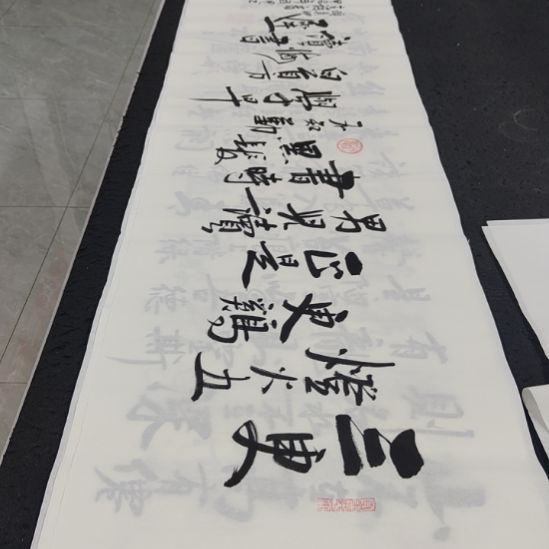 三更
燈火五
更鷄
正是
男兒讀
書時
黑髮
不知勤
學早
白首方
悔讀書
遲